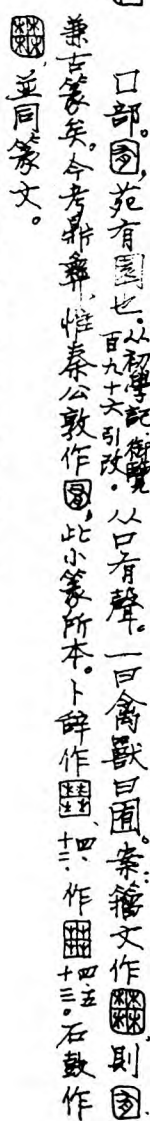 口部。囿,苑有園也。从初學記御覽百九十六引改。从口有聲。一曰禽獸曰囿。案:籀文作𡈹,則囿
兼古篆矣。今考鼎彝,惟秦公敦作囿,此小篆所本。卜辭作𡇴、四、十二、作𡈹四、十三。石鼓作
𡈹,並同籀文。